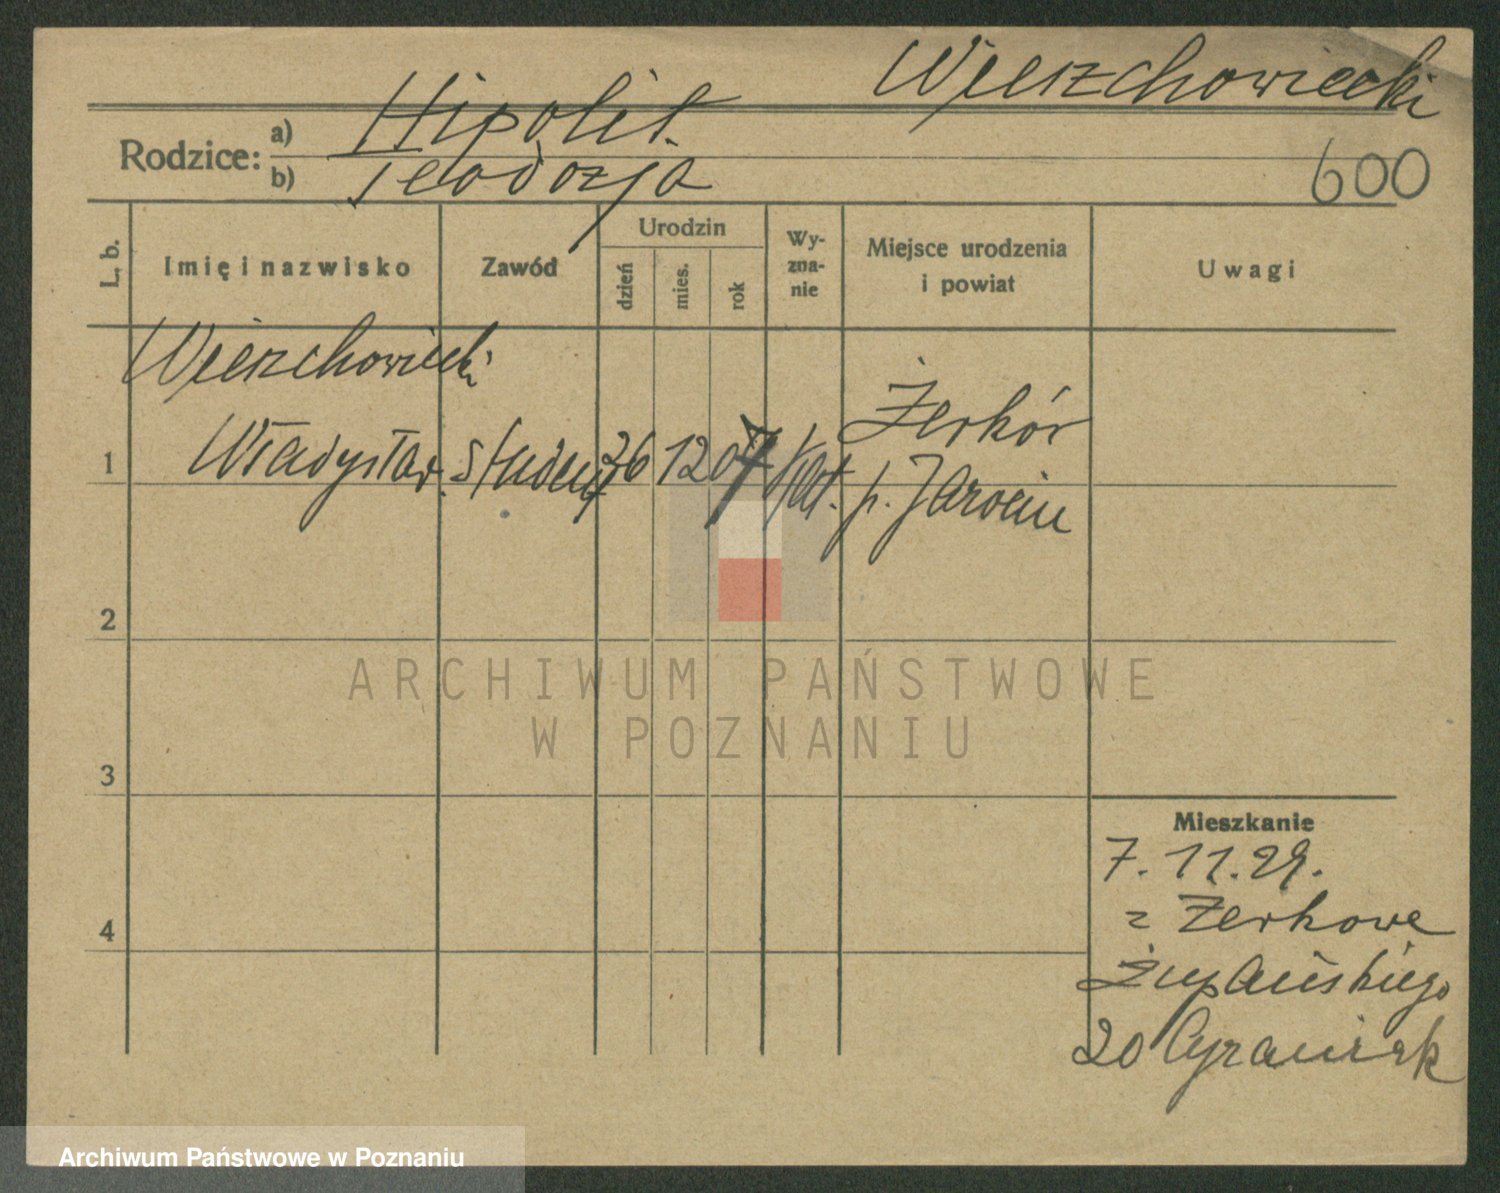 Wierzchowiecki
Rodzice: a) Hipolit.
b) Teodozja
600
L. b.
Imię i nazwisko
Zawód
Urodzin
dzień
mies.
rok
Wy-
zna-
nie
Miejsce urodzenia
i powiat
Uwagi
Wierzchowiecki
Żerków
1 Władysław. student 26 12 07 kat. p. Jarocin
2
3
4
ARCHIWUM PAŃSTWOWE
W POZNANIU
Mieszkanie
7. 11. 29.
z Żerkowa
Żupańskiego
20 Cyraniak
Archiwum Państwowe w Poznaniu